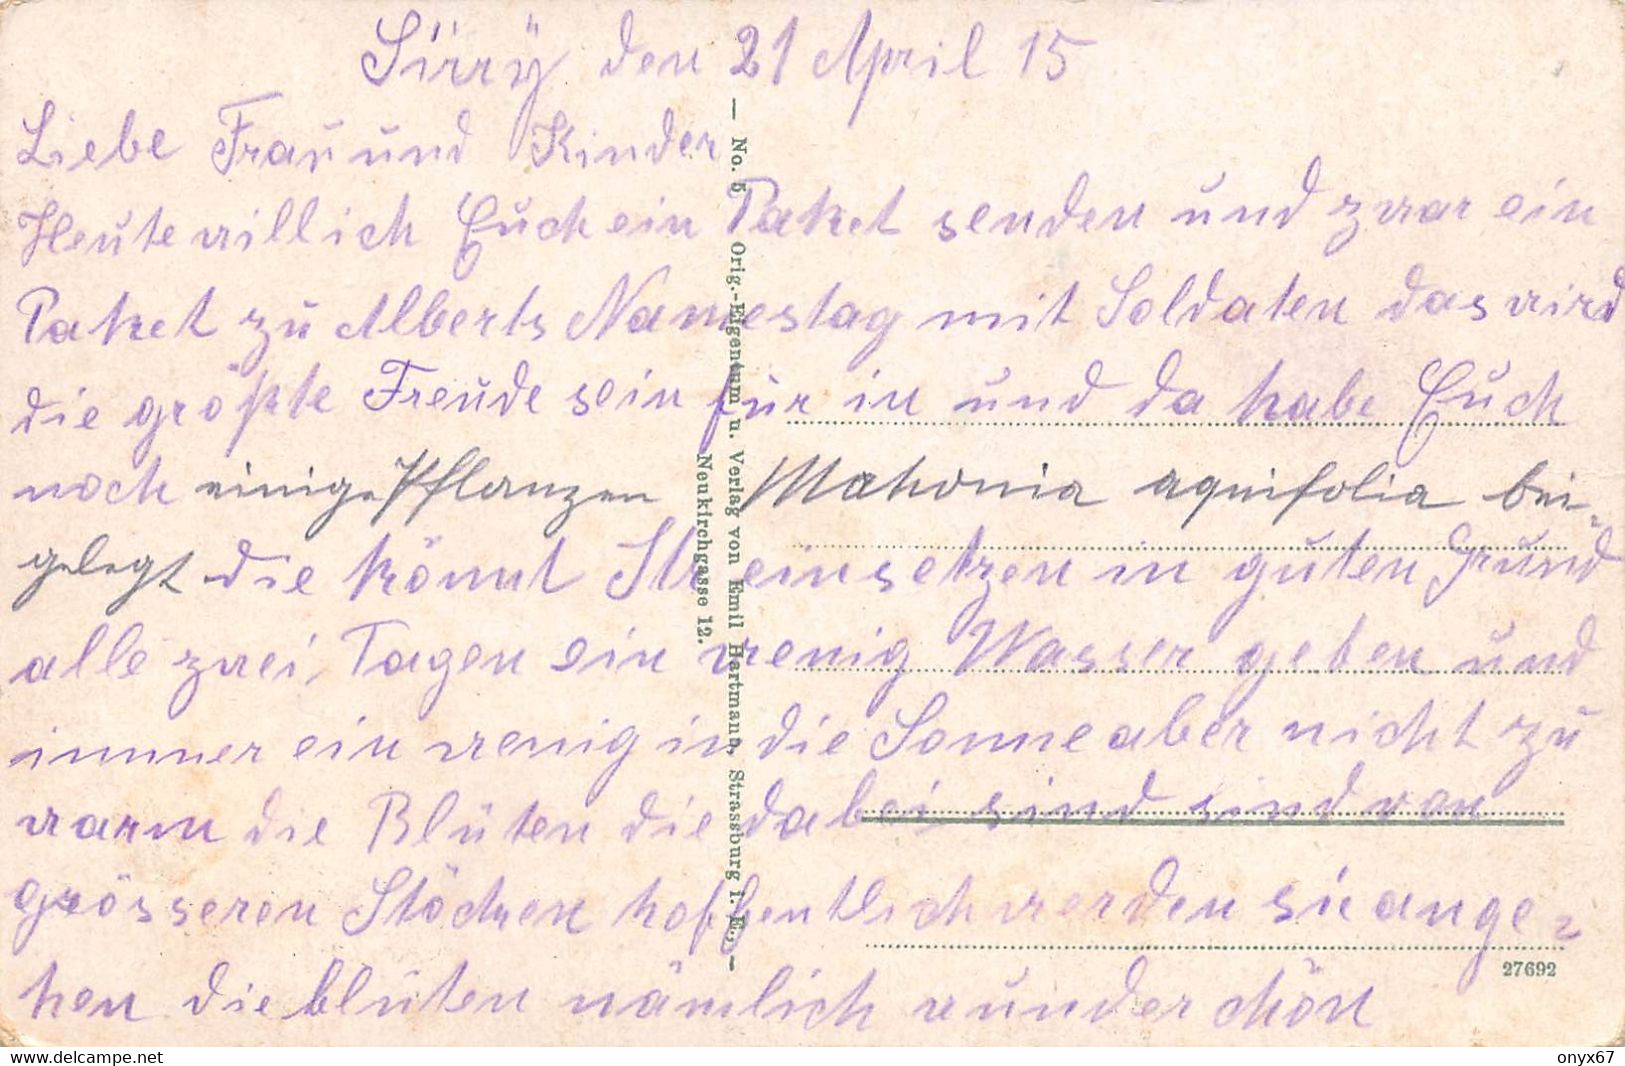 Sïrrÿ den 21 April 15
Liebe Frau und Kinder
Heute will ich Euch ein Paket senden und zwar ein
Paket zu Alberts Namestag mit Soldaten das wird
die größte Freude sein für in und da habe Euch
noch einige Pflanzen Mahonia aquifolia bei-
gelegt die könnt Ihr einsetzen in guten Grund
alle zwei Tagen ein wenig Wasser geben und
immer ein wenig in die Sonne aber nicht zu
warm die Blüten die dabei sind sind von
grösseren Stöcken hoffentlich werden sie ange-
hen die blüten nämlich wunderchön
— No. 5 Orig.-Eigentum u. Verlag von Emil Hartmann, Strassburg i. E., —
Neukirchgasse 12.
27692
www.delcampe.net
onyx67